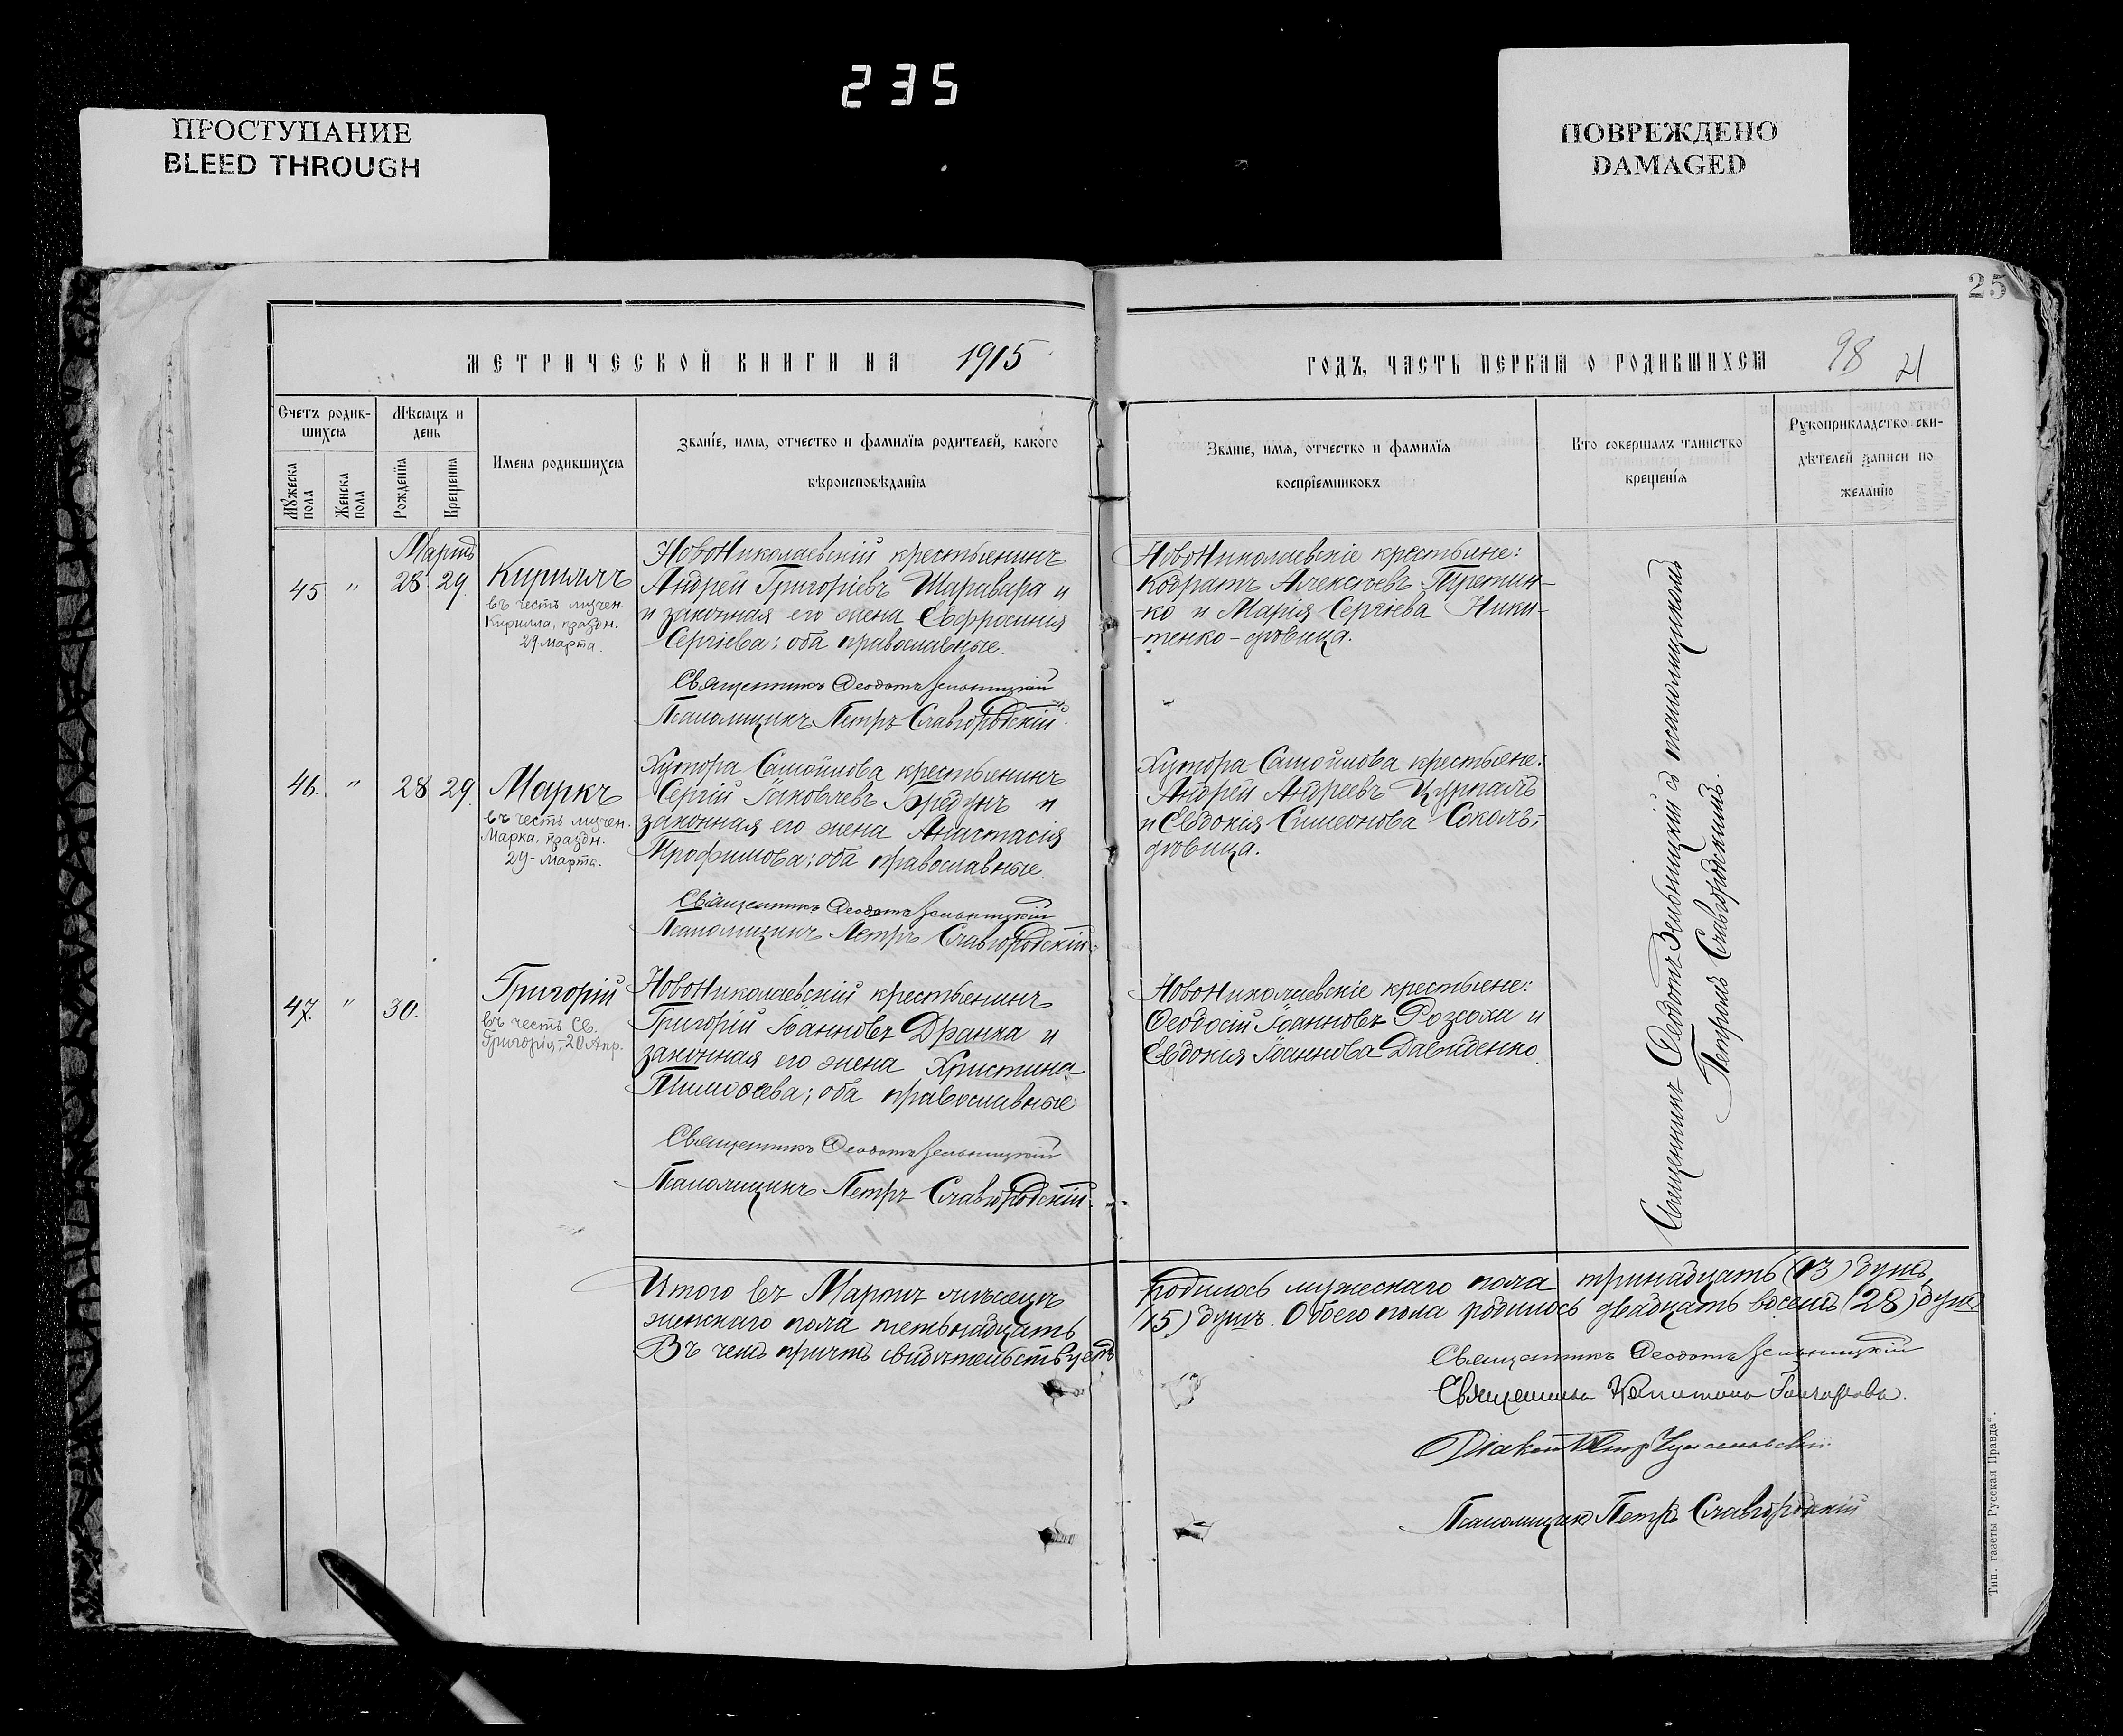 235
ПРОСТУПАНИЕ
BLEED THROUGH
ПОВРЕЖДЕНО
DAMAGED
25
МЕТРИЧЕСКОЙ КНИГИ НА 1915
ГОДЪ, ЧАСТЬ ПЕРВАЯ О РОДИВШИХСЯ
98 21
Счетъ родив-
шихся
Мѣсяцъ и
день
Мужеска пола
Женска пола
Рожденія
Крещенія
Имена родившихся
Званіе, имя, отчество и фамилія родителей, какого
вѣроисповѣданія
Званіе, имя, отчество и фамилія
воспріемниковъ
Кто совершалъ таинство
крещенія
Рукоприкладство сви-
дѣтелей записи по
желанію
Мартъ
45 " 28. 29. Кириллъ
въ честь мучен.
Кирилла, праздн.
29 марта.
Новониколаевскій крестьянинъ
Андрей Григоріевъ Шаравара и
и законная его жена Евфросинія
Сергіева; оба православные.
Священникъ Ѳеодотъ Зельницкій
Псаломщикъ Петръ Славгородскій.
Новониколаевскіе крестьяне:
Кодратъ Алексѣевъ Третин-
-ко и Марія Сергіева Ники-
-тенко-дѣвица.
46. " 28 29. Маркъ
въ честь мучен.
Марка, праздн.
29-марта.
Хутора Самойлова крестьянинъ
Сергій Іаковлевъ Бредунъ и
законная его жена Анастасія
Трофимова; оба православные.
Священникъ Ѳеодотъ Зельницкій
Псаломщикъ Петръ Славгородскій.
Хутора Самойлова крестьяне:
Андрей Андреевъ Цурпалъ
и Евдокія Симеонова Соколъ,-
дѣвица.
47. " 30. Григорій
въ честь Св.
Григорія,-20 Апр.
Новониколаевскій крестьянинъ
Григорій Іоанновъ Дранка и
законная его жена Христина
Тимоѳеева; оба православные
Священникъ Ѳеодотъ Зельницкій
Псаломщикъ Петръ Славгородскій.
Новониколаевскіе крестьяне:
Ѳеодосій Іоанновъ Розсоха и
Евдокія Іоаннова Давиденко.
Священникъ Ѳеодотъ Зельницкій съ псаломщикомъ
Петромъ Славгородскимъ.
Итого въ Мартѣ мѣсяцѣ родилось мужескаго пола тринадцать (13) душъ,
женскаго пола пятьнадцать (15) душъ. Обоего пола родилось двадцать восемь (28) душъ
Въ чемъ причтъ свидѣтельствуетъ
Священникъ Ѳеодотъ Зельницкій
Священникъ Капитонъ Гончаровъ.
Діаконъ Петръ
Псаломщикъ Петръ Славгородскій
Тип. газеты „Русская Правда“.